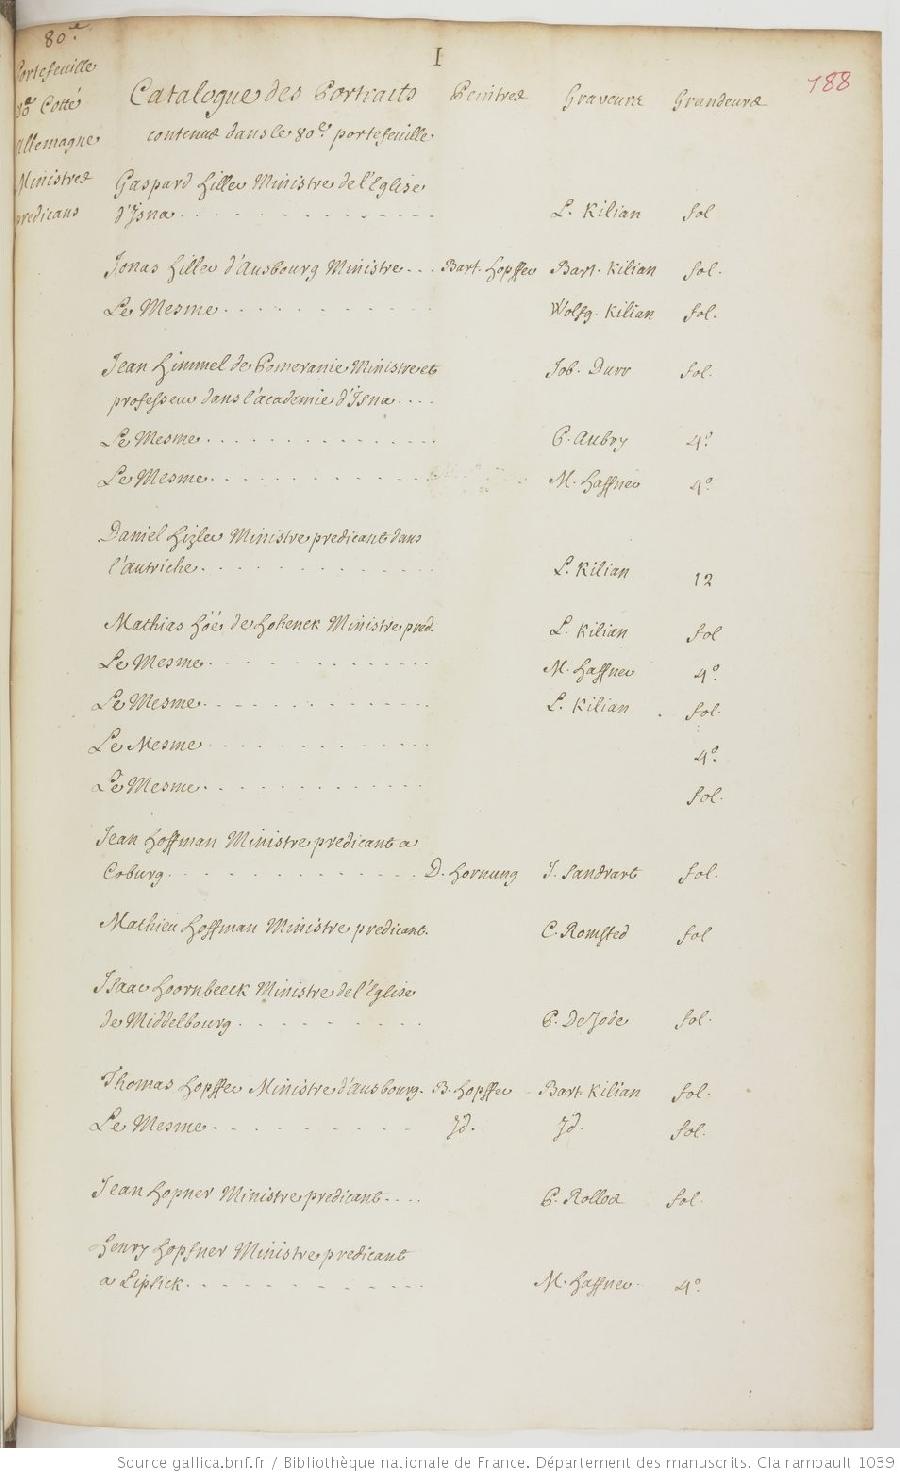 80.e
Portefeuille
80e Cotté
allemagne
Ministres
predicans
I
188
Catalogue des Portraits Peintres Graveurs Grandeurs
contenus dans le 80.e portefeuille
Gaspard Hiller Ministre de l'Eglise
d'Isna. L. Kilian fol
Jonas Hiller d'Ausbourg Ministre Bart. Hopffer Bart. Kilian fol.
Le Mesme Wolfg. Kilian fol.
Jean Himmel de Pomeranie Ministre et Joh. Durr fol.
professeur dans l'academie d'Isna
Le Mesme P. Aubry 4.o
Le Mesme M. Haffner 4.o
Daniel Hizler Ministre predicant dans
l'autriche. L. Kilian 12
Mathias Höé de Hohenek Ministre pred. L. Kilian fol
Le Mesme M. Haffner 4.o
Le Mesme L. Kilian fol.
Le Mesme 4.o
Le Mesme fol.
Jean Hoffman Ministre predicant a
Coburg D. Hornung J. Sandrart fol.
Mathieu Hoffman Ministre predicant. C. Romsted fol
Isaac Hoornbeeck Ministre de l'Eglise
de Middelbourg P. De Jode fol.
Thomas Hopffer Ministre d'Ausbourg. B. Hopffer Bart. Kilian fol.
Le Mesme Id. Id. fol.
Jean Hopner Ministre predicant P. Rollos fol.
Henry Hopfner Ministre predicant
a Lipsick M. Haffner 4.o
Source gallica.bnf.fr / Bibliothèque nationale de France. Département des manuscrits. Clairambault 1039